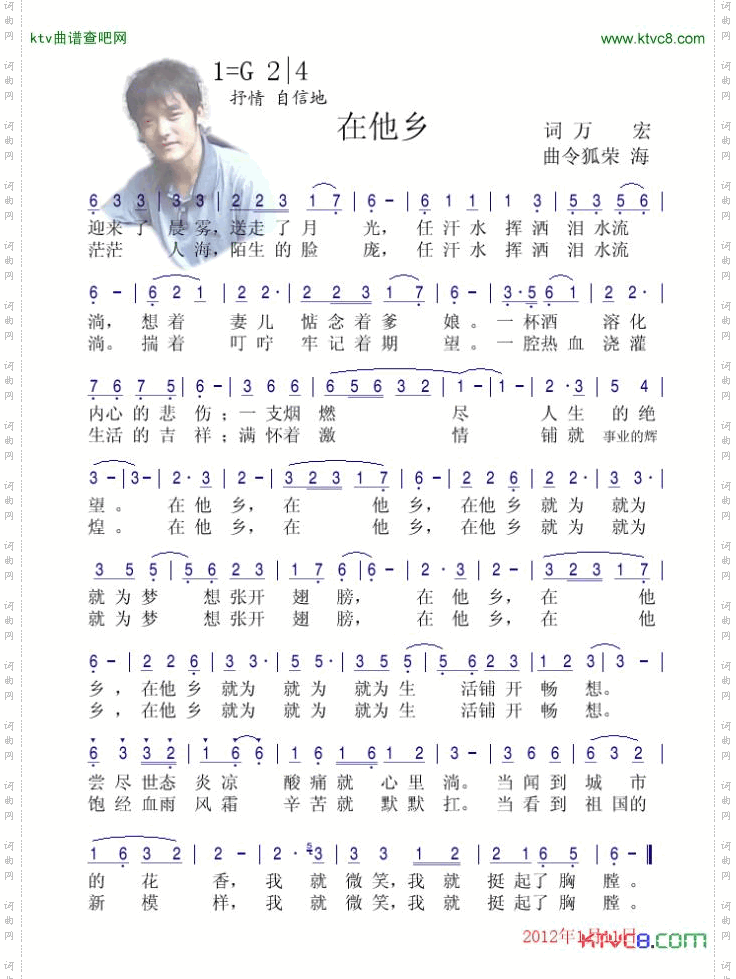 ktv曲谱查吧网 www.ktvc8.com
1=G 2|4
抒情 自信地
在他乡
词 万 宏
曲令狐荣 海
6 3 3 | 3 3 | 2 2 3 1 7 | 6 - | 6 1 1 | 1 3 | 5 3 5 6 |
迎来了 晨雾,送走了月 光, 任汗水 挥洒 泪水流
茫茫 人海,陌生的脸 庞, 任汗水 挥洒 泪水流
6 - | 6 2 1 | 2 2· | 2 2 3 1 7 | 6 - | 3·5 6 1 | 2 2· |
淌, 想着 妻儿 惦念着爹 娘。一杯酒 溶化
淌。揣着 叮咛 牢记着期 望。一腔热血 浇灌
7 6 7 5 | 6 - | 3 6 6 | 6 5 6 3 2 | 1 - | 1 - | 2·3 | 5 4 |
内心的悲 伤;一支烟 燃 尽 人生 的绝
生活的吉 祥;满怀着 激 情 铺就 事业的辉
3 - | 3 - | 2·3 | 2 - | 3 2 3 1 7 | 6 - | 2 2 6 | 2 2· | 3 3· |
望。 在他 乡,在 他 乡,在他乡 就为 就为
煌。 在他 乡,在 他 乡,在他乡 就为 就为
3 5 5 | 5 6 2 3 | 1 7 6 | 6 - | 2·3 | 2 - | 3 2 3 1 7 |
就为梦 想张开 翅 膀, 在 他 乡,在 他
就为梦 想张开 翅 膀, 在 他 乡,在 他
6 - | 2 2 6 | 3 3· | 5 5· | 3 5 5 | 5 6 2 3 | 1 2 3 |
乡,在他乡 就为 就为 就为生 活铺开 畅 想。
乡,在他乡 就为 就为 就为生 活铺开 畅 想。
6 3 3 2 | 1 6 6 | 1 6 1 6 | 1 2 | 3 - | 3 6 6 | 2 3 3 |
尝尽世态 炎凉 酸痛就 心里 淌。当闻到 城 市
饱经血雨 风霜 辛苦就 默默 扛。当看到 祖国的
1 6 3 2 | 2 - | 2· 5 3 | 3 3 | 1 2 | 2 1 6 5 | 6 - ‖
的 花 香,我 就 微笑,我就 挺起了胸 膛。
新 模 样,我 就 微笑,我就 挺起了胸 膛。
KTVC8.COM